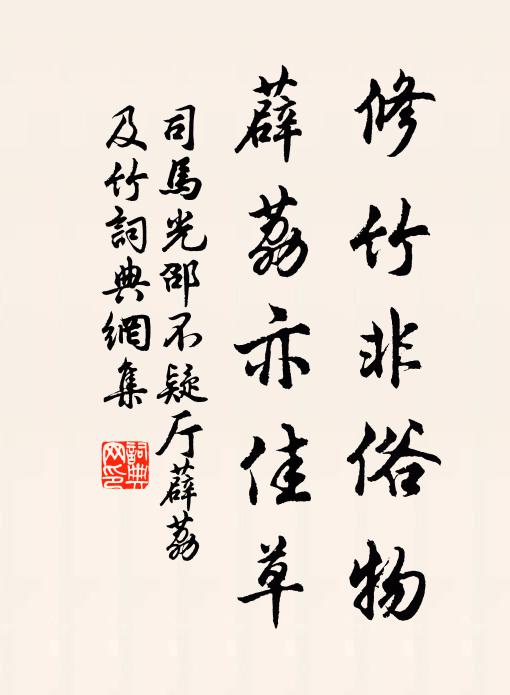 修竹非俗物
薜荔亦佳草
司馬光邵不疑厅薜荔
及竹詞典網集
詞典
网印